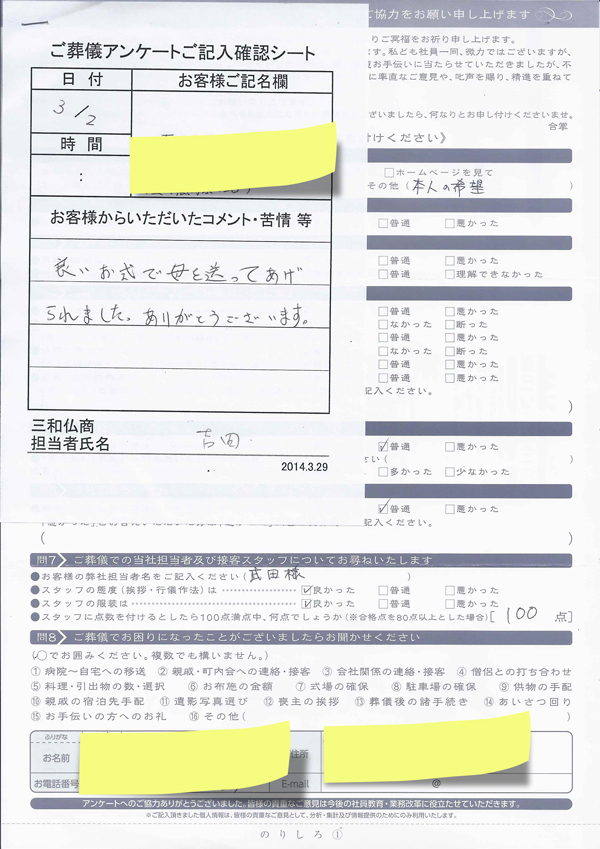 ご協力をお願い申し上げます
ご葬儀アンケートご記入確認シート
日 付
お客様ご記名欄
3/2
時 間
:
お客様からいただいたコメント・苦情 等
良いお式で母を送ってあげ
られました。ありがとうございます。
三和仏商
担当者氏名
吉田
2014.3.29
りご冥福をお祈り申し上げます。
ます。私ども社員一同、微力ではございますが、
お手伝いに当たらせていただきましたが、不
に率直なご意見や、叱声を賜り、精進を重ねて
ざいましたら、何なりとお申し付けくださいませ。
合掌
付けください》
□ホームページを見て
その他(本人の希望
□普通 □悪かった
□普通 □悪かった
□普通 □理解できなかった
□普通 □悪かった
□なかった □断った
□普通 □悪かった
□なかった □断った
□普通 □悪かった
□普通 □悪かった
記入ください。
)
☑普通 □悪かった
さい( )
□多かった □少なかった
☑普通 □悪かった
記入ください。
( )
問7 ご葬儀での当社担当者及び接客スタッフについてお尋ねいたします
●お客様の弊社担当者名をご記入ください(武田様 )
●スタッフの態度(挨拶・行儀作法)は ☑良かった □普通 □悪かった
●スタッフの服装は ☑良かった □普通 □悪かった
●スタッフに点数を付けるとしたら100点満点中、何点でしょうか(※合格点を80点以上とした場合)[ 100 点]
問8 ご葬儀でお困りになったことがございましたらお聞かせください
(○でお囲みください。複数でも構いません。)
①病院〜自宅への移送 ②親戚・町内会への連絡・接客 ③会社関係の連絡・接客 ④僧侶との打ち合わせ
⑤料理・引出物の数・選択 ⑥お布施の金額 ⑦式場の確保 ⑧駐車場の確保 ⑨供物の手配
⑩親戚の宿泊先手配 ⑪遺影写真選び ⑫喪主の挨拶 ⑬葬儀後の諸手続き ⑭あいさつ回り
⑮お手伝いの方へのお礼 ⑯その他( )
ふりがな
お名前
住所
お電話番号
E-mail
@
アンケートへのご協力ありがとうございました。皆様の貴重なご意見は今後の社員教育・業務改革に役立たせていただきます。
※ご記入頂きました個人情報は、皆様の貴重なご意見として、分析・集計及び情報提供のためにのみ利用いたします。
のりしろ①